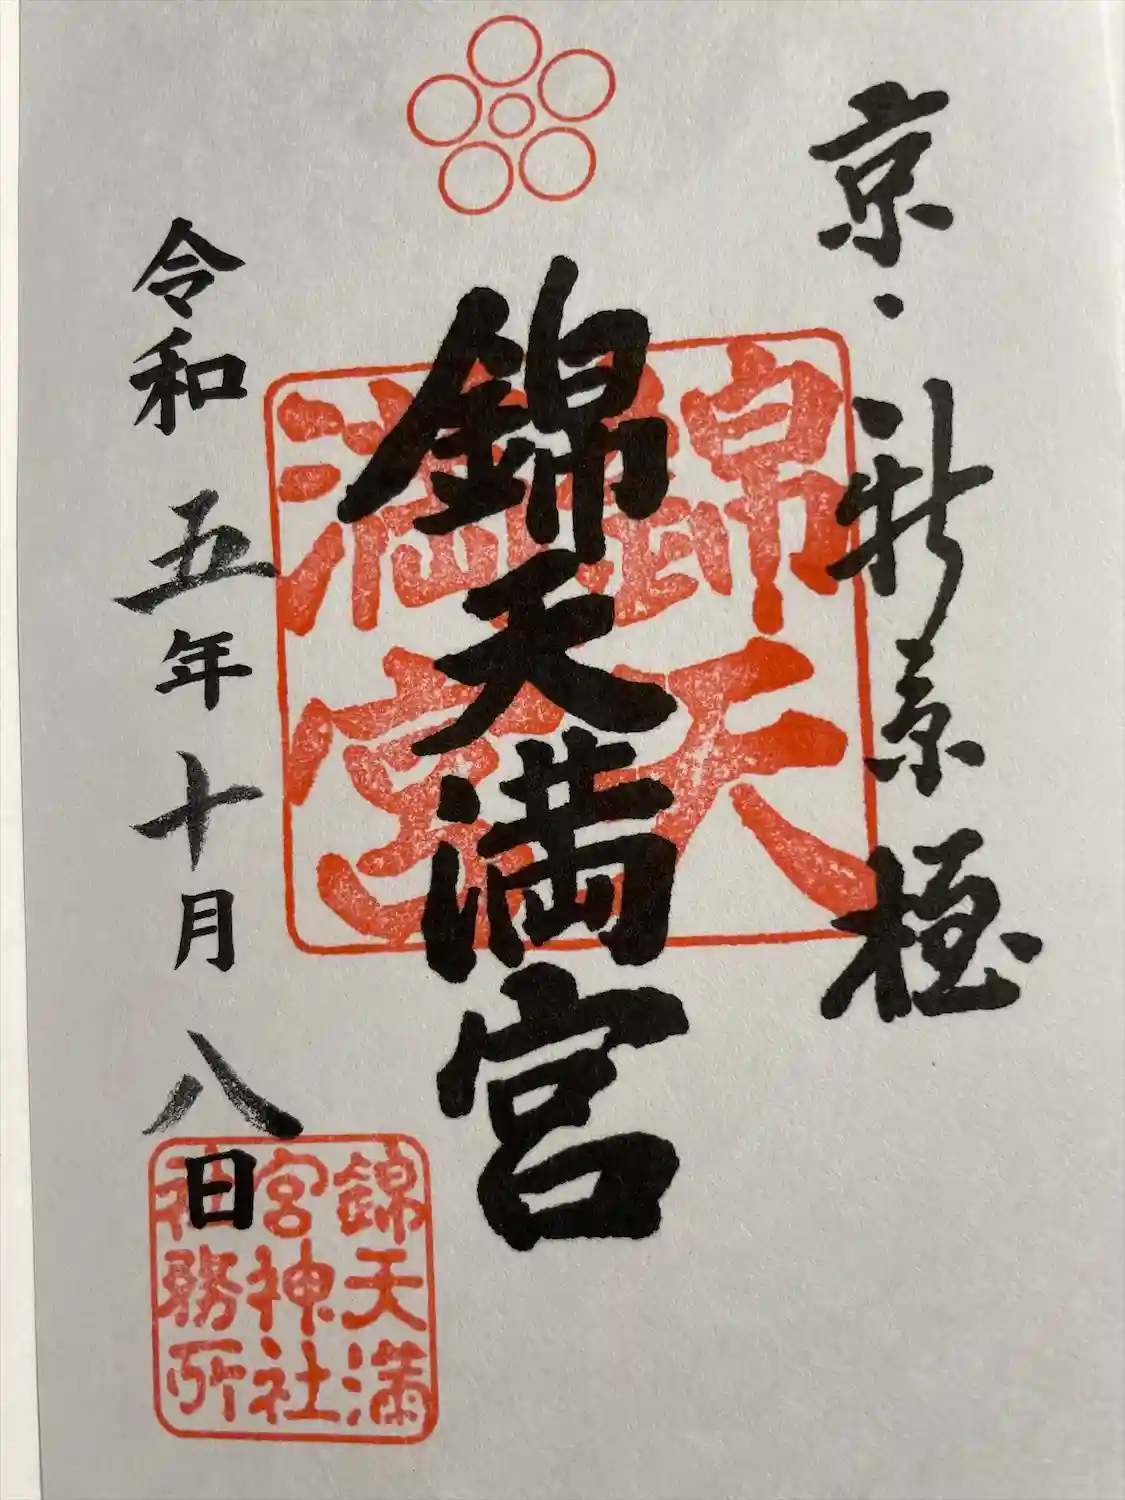 京・新京極
錦天満宮
錦天
満宮
令和五年十月八日
錦天満
宮神社
社務所